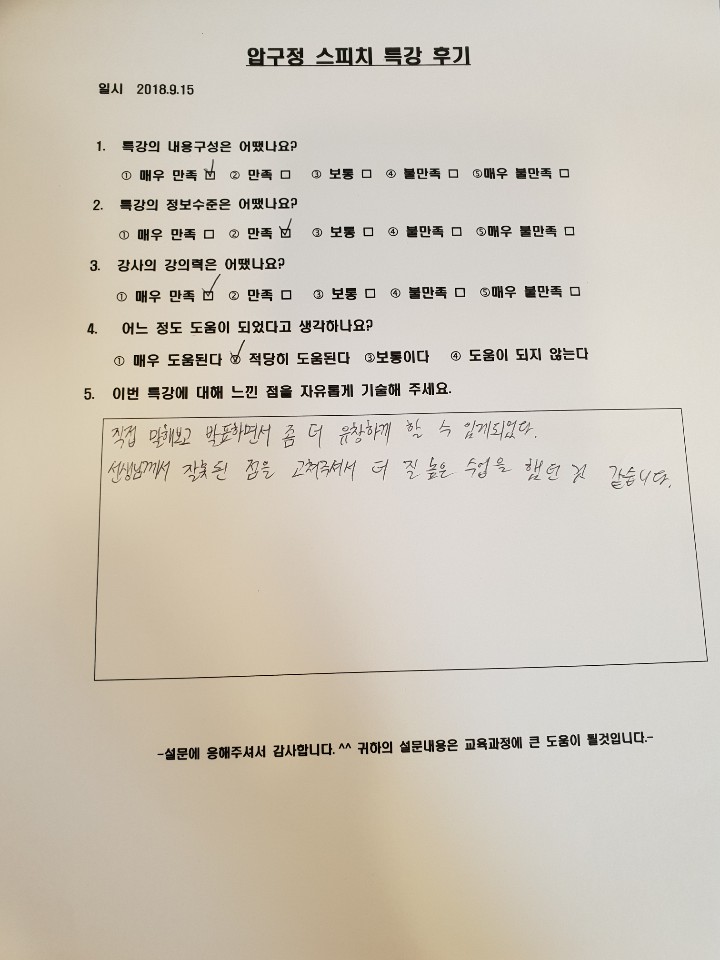 압구정 스피치 특강 후기
일시 2018.9.15
1. 특강의 내용구성은 어땠나요?
① 매우 만족 ☑ ② 만족 □ ③ 보통 □ ④ 불만족 □ ⑤매우 불만족 □
2. 특강의 정보수준은 어땠나요?
① 매우 만족 □ ② 만족 ☑ ③ 보통 □ ④ 불만족 □ ⑤매우 불만족 □
3. 강사의 강의력은 어땠나요?
① 매우 만족 ☑ ② 만족 □ ③ 보통 □ ④ 불만족 □ ⑤매우 불만족 □
4. 어느 정도 도움이 되었다고 생각하나요?
① 매우 도움된다 ② 적당히 도움된다 ③보통이다 ④ 도움이 되지 않는다
5. 이번 특강에 대해 느낀 점을 자유롭게 기술해 주세요.
직접 말해보고 발표하면서 좀 더 유창하게 할 수 있게되었다.
선생님께서 잘못된 점을 고쳐주셔서 더 질 높은 수업을 했던 것 같습니다.
-설문에 응해주셔서 감사합니다.^^ 귀하의 설문내용은 교육과정에 큰 도움이 될것입니다.-